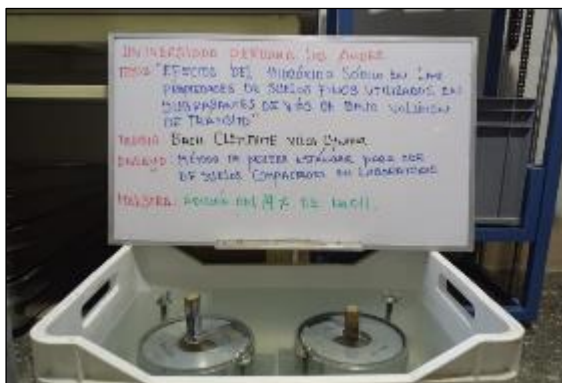 UNIVERSIDAD PERUANA LOS ANDES
TESIS: "EFECTOS DEL HIDRÓXIDO SÓDICO EN LAS
PROPIEDADES DE SUELOS FINOS UTILIZADOS EN
SUBRASANTES DE VÍAS DE BAJO VOLUMEN
DE TRANSITO"
BACH. CLEMENTE
ENSAYO: MÉTODO DE ESTÁNDAR PARA CBR
DE SUELOS COMPACTADO EN LABORATORIO
MUESTRA: ADICIÓN DEL % DE NaOH.